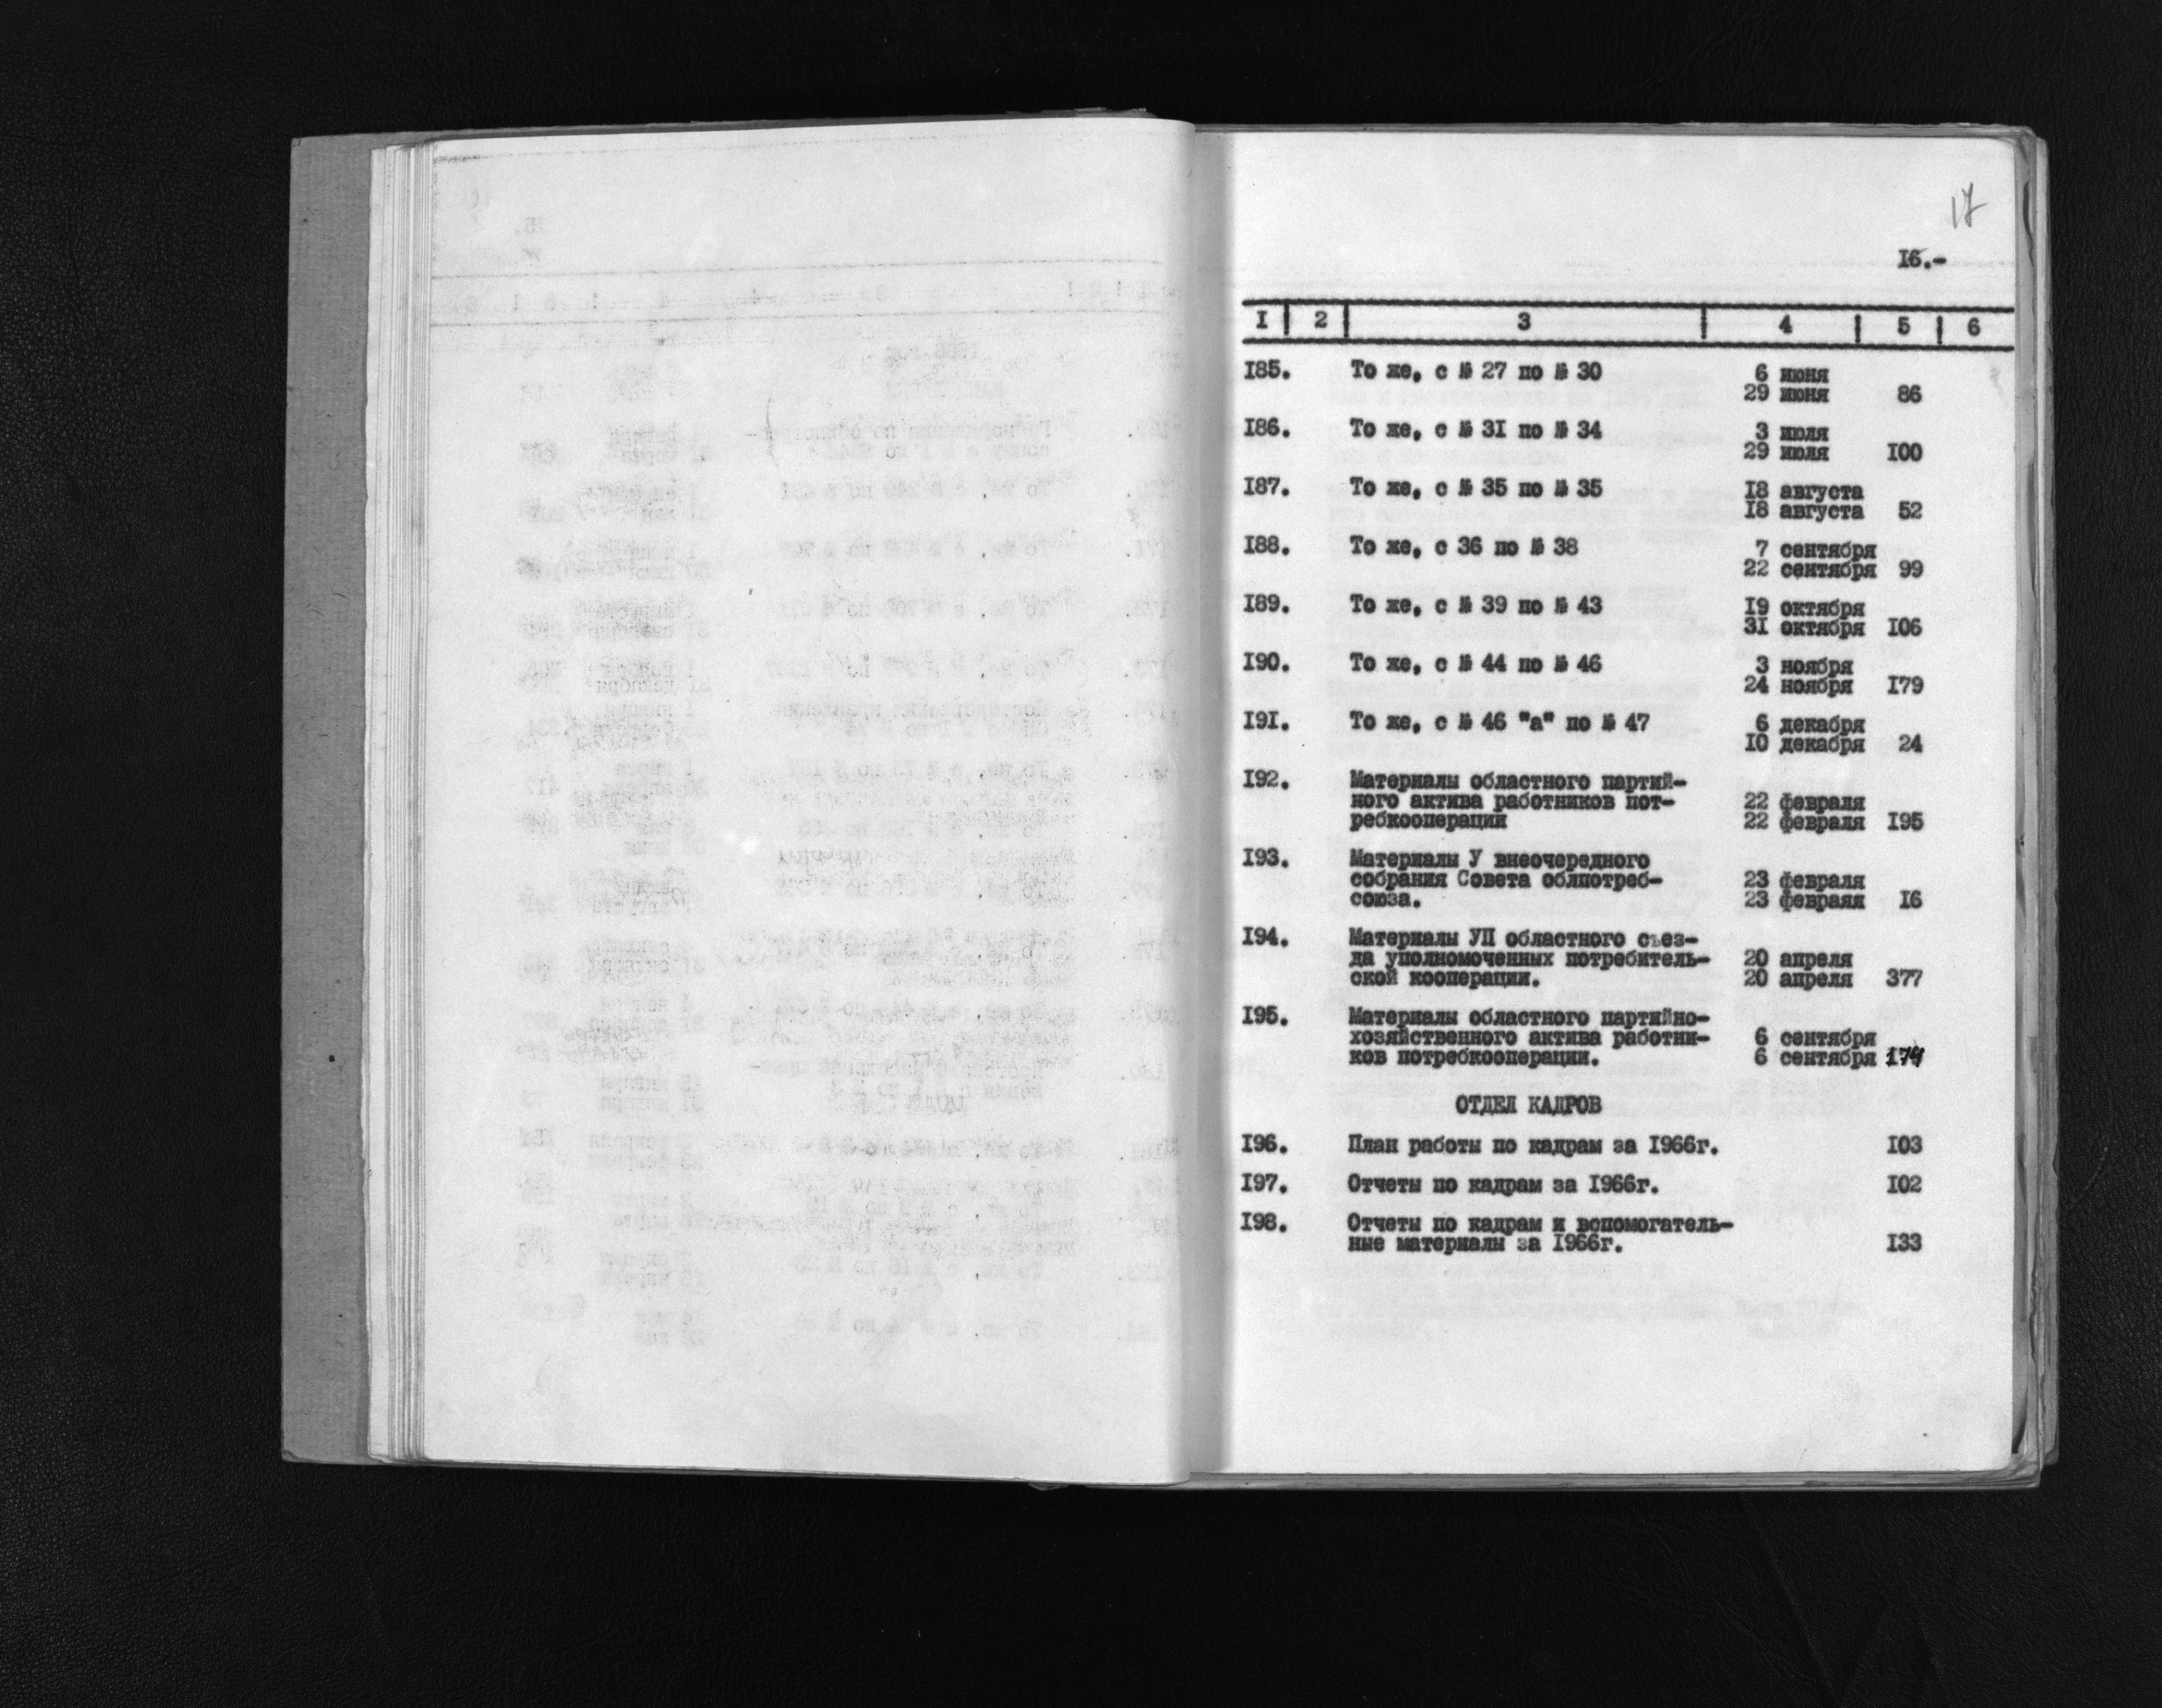 17
I6.-
I 2 3 4 5 6
I85. То же, с № 27 по № 30 6 июня
29 июня 86
I86. То же, с № 3I по № 34 3 июля
29 июля I00
I87. То же, с № 35 по № 35 I8 августа
I8 августа 52
I88. То же, с 36 по № 38 7 сентября
22 сентября 99
I89. То же, с № 39 по № 43 I9 октября
3I октября I06
I90. То же, с № 44 по № 46 3 ноября
24 ноября I79
I9I. То же, с № 46 "а" по № 47 6 декабря
I0 декабря 24
I92. Материалы областного партий-
ного актива работников пот- 22 февраля
ребкооперации 22 февраля I95
I93. Материалы У внеочередного
собрания Совета облпотреб- 23 февраля
союза. 23 февраля I6
I94. Материалы УП областного съез-
да уполномоченных потребитель- 20 апреля
ской кооперации. 20 апреля 377
I95. Материалы областного партийно-
хозяйственного актива работни- 6 сентября
ков потребкооперации. 6 сентября 174
ОТДЕЛ КАДРОВ
I96. План работы по кадрам за I966г. I03
I97. Отчеты по кадрам за I966г. I02
I98. Отчеты по кадрам и вспомогатель-
ные материалы за I966г. I33